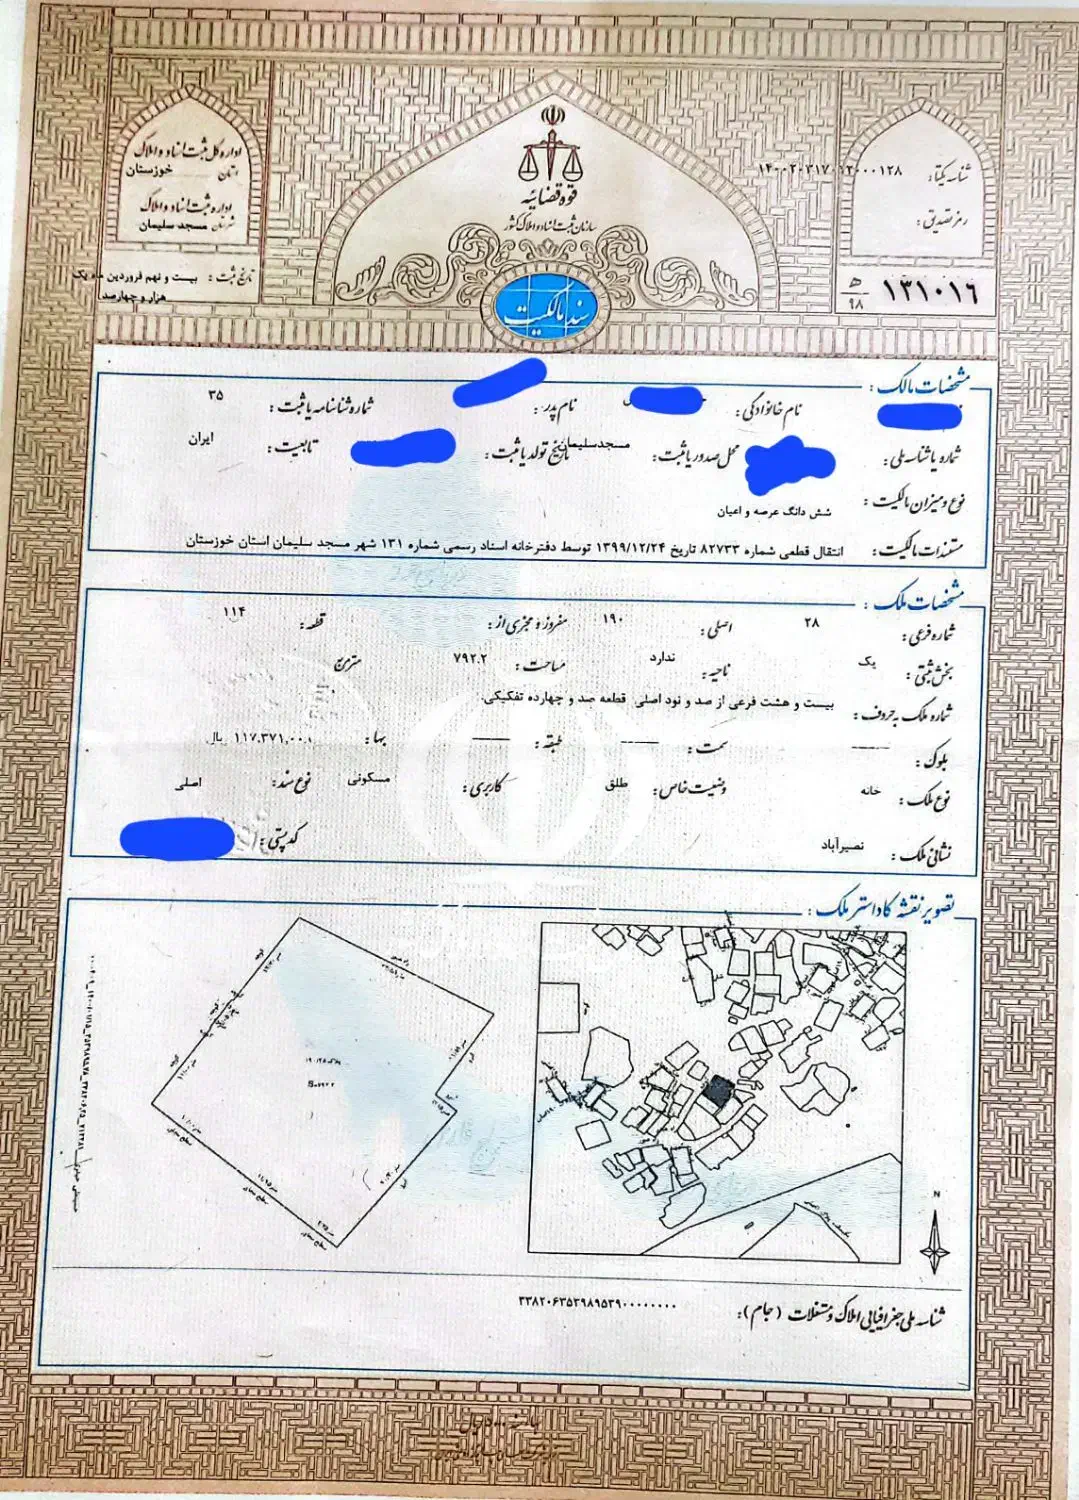 قوه قضائیه
سازمان ثبت اسناد و املاک کشور
سند مالکیت
شناسه یکتا:
رمز تصدیق:
۱۳۱۰۱۶
ه‍
۹۸
اداره کل ثبت اسناد و املاک
استان خوزستان
اداره ثبت اسناد و املاک
شهرستان مسجد سلیمان
تاریخ ثبت: بیست و نهم فروردین ماه یک
هزار و چهارصد
مشخصات مالک:
نام خانوادگی: نام پدر: شماره شناسنامه یا ثبت: ۳۵
شماره یا شناسه ملی: محل صدور یا ثبت: مسجدسلیمان تاریخ تولد یا ثبت: تابعیت: ایران
نوع و میزان مالکیت: شش دانگ عرصه و اعیان
مستندات مالکیت: انتقال قطعی شماره ۸۲۷۳۳ تاریخ ۱۳۹۹/۱۲/۲۴ توسط دفترخانه اسناد رسمی شماره ۱۳۱ شهر مسجد سلیمان استان خوزستان
مشخصات ملک:
شماره فرعی: ۲۸ اصلی: ۱۹۰ مفروز و مجزی از: قطعه: ۱۱۴
بخش ثبتی: یک ناحیه: ندارد مساحت: ۷۹۲.۲ متر مربع
شماره ملک به حروف: بیست و هشت فرعی از صد و نود اصلی قطعه صد و چهارده تفکیکی.
بلوک: سمت: طبقه: بها: ۱۱۷,۳۷۱,۰۰۰ ریال
نوع ملک: خانه وضعیت خاص: طلق کاربری: مسکونی نوع سند: اصلی
نشانی ملک: نصیرآباد کد پستی:
تصویر نقشه کاداستر ملک:
N
شناسه ملی جغرافیایی املاک و مستغلات (جام): ۳۳۸۲۰۶۳۵۳۹۸۹۵۳۹۰۰۰۰۰۰۰۰